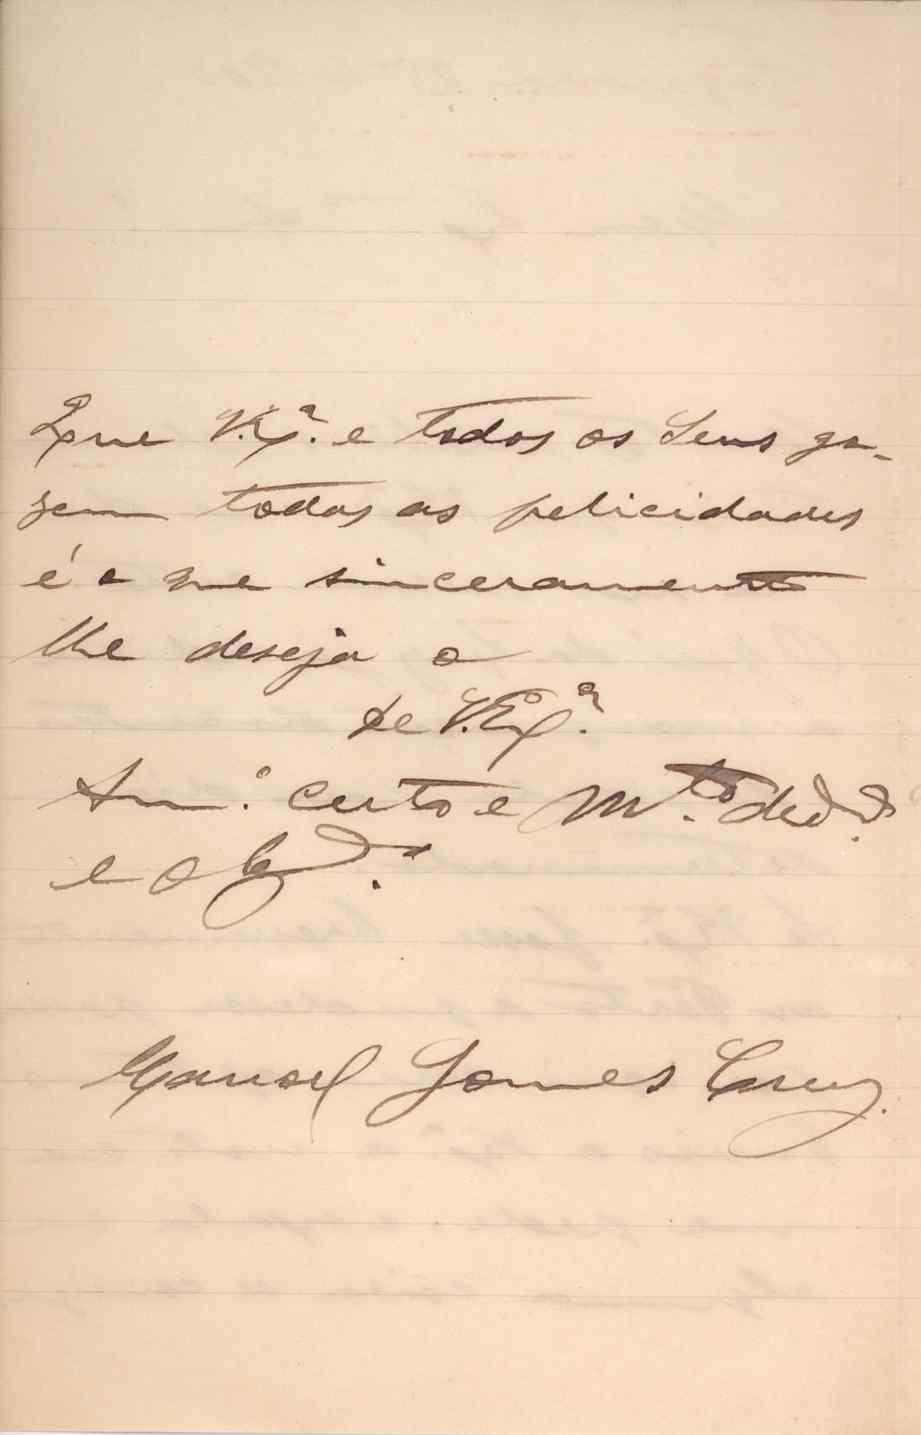 Que V. Exª. e todos os Seus go-
zem todas as felicidades
é o que sinceramente
lhe deseja o
de V. Exª.
Amº. certo e Mto. dedº.
e obgdº.
Manoel Gomes Cruz.